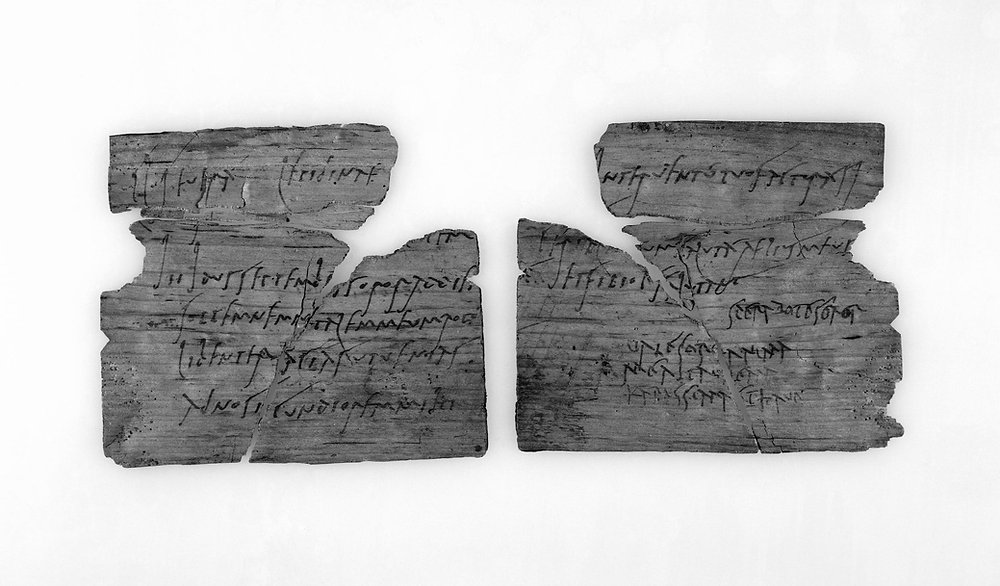 Cl Seuera Lepidinae
tem
iii Idus Septembres soror ad diem
sollemnem natalem meum rogo
libenter facias ut uenias
ad nos iucundiorem mihi
interuentu tuo factura si
Cerial uum saluta Aelius meus
et filiolus salutant
sperabo te soror
uale soror anima
mea ita ualeam
karissima et haue